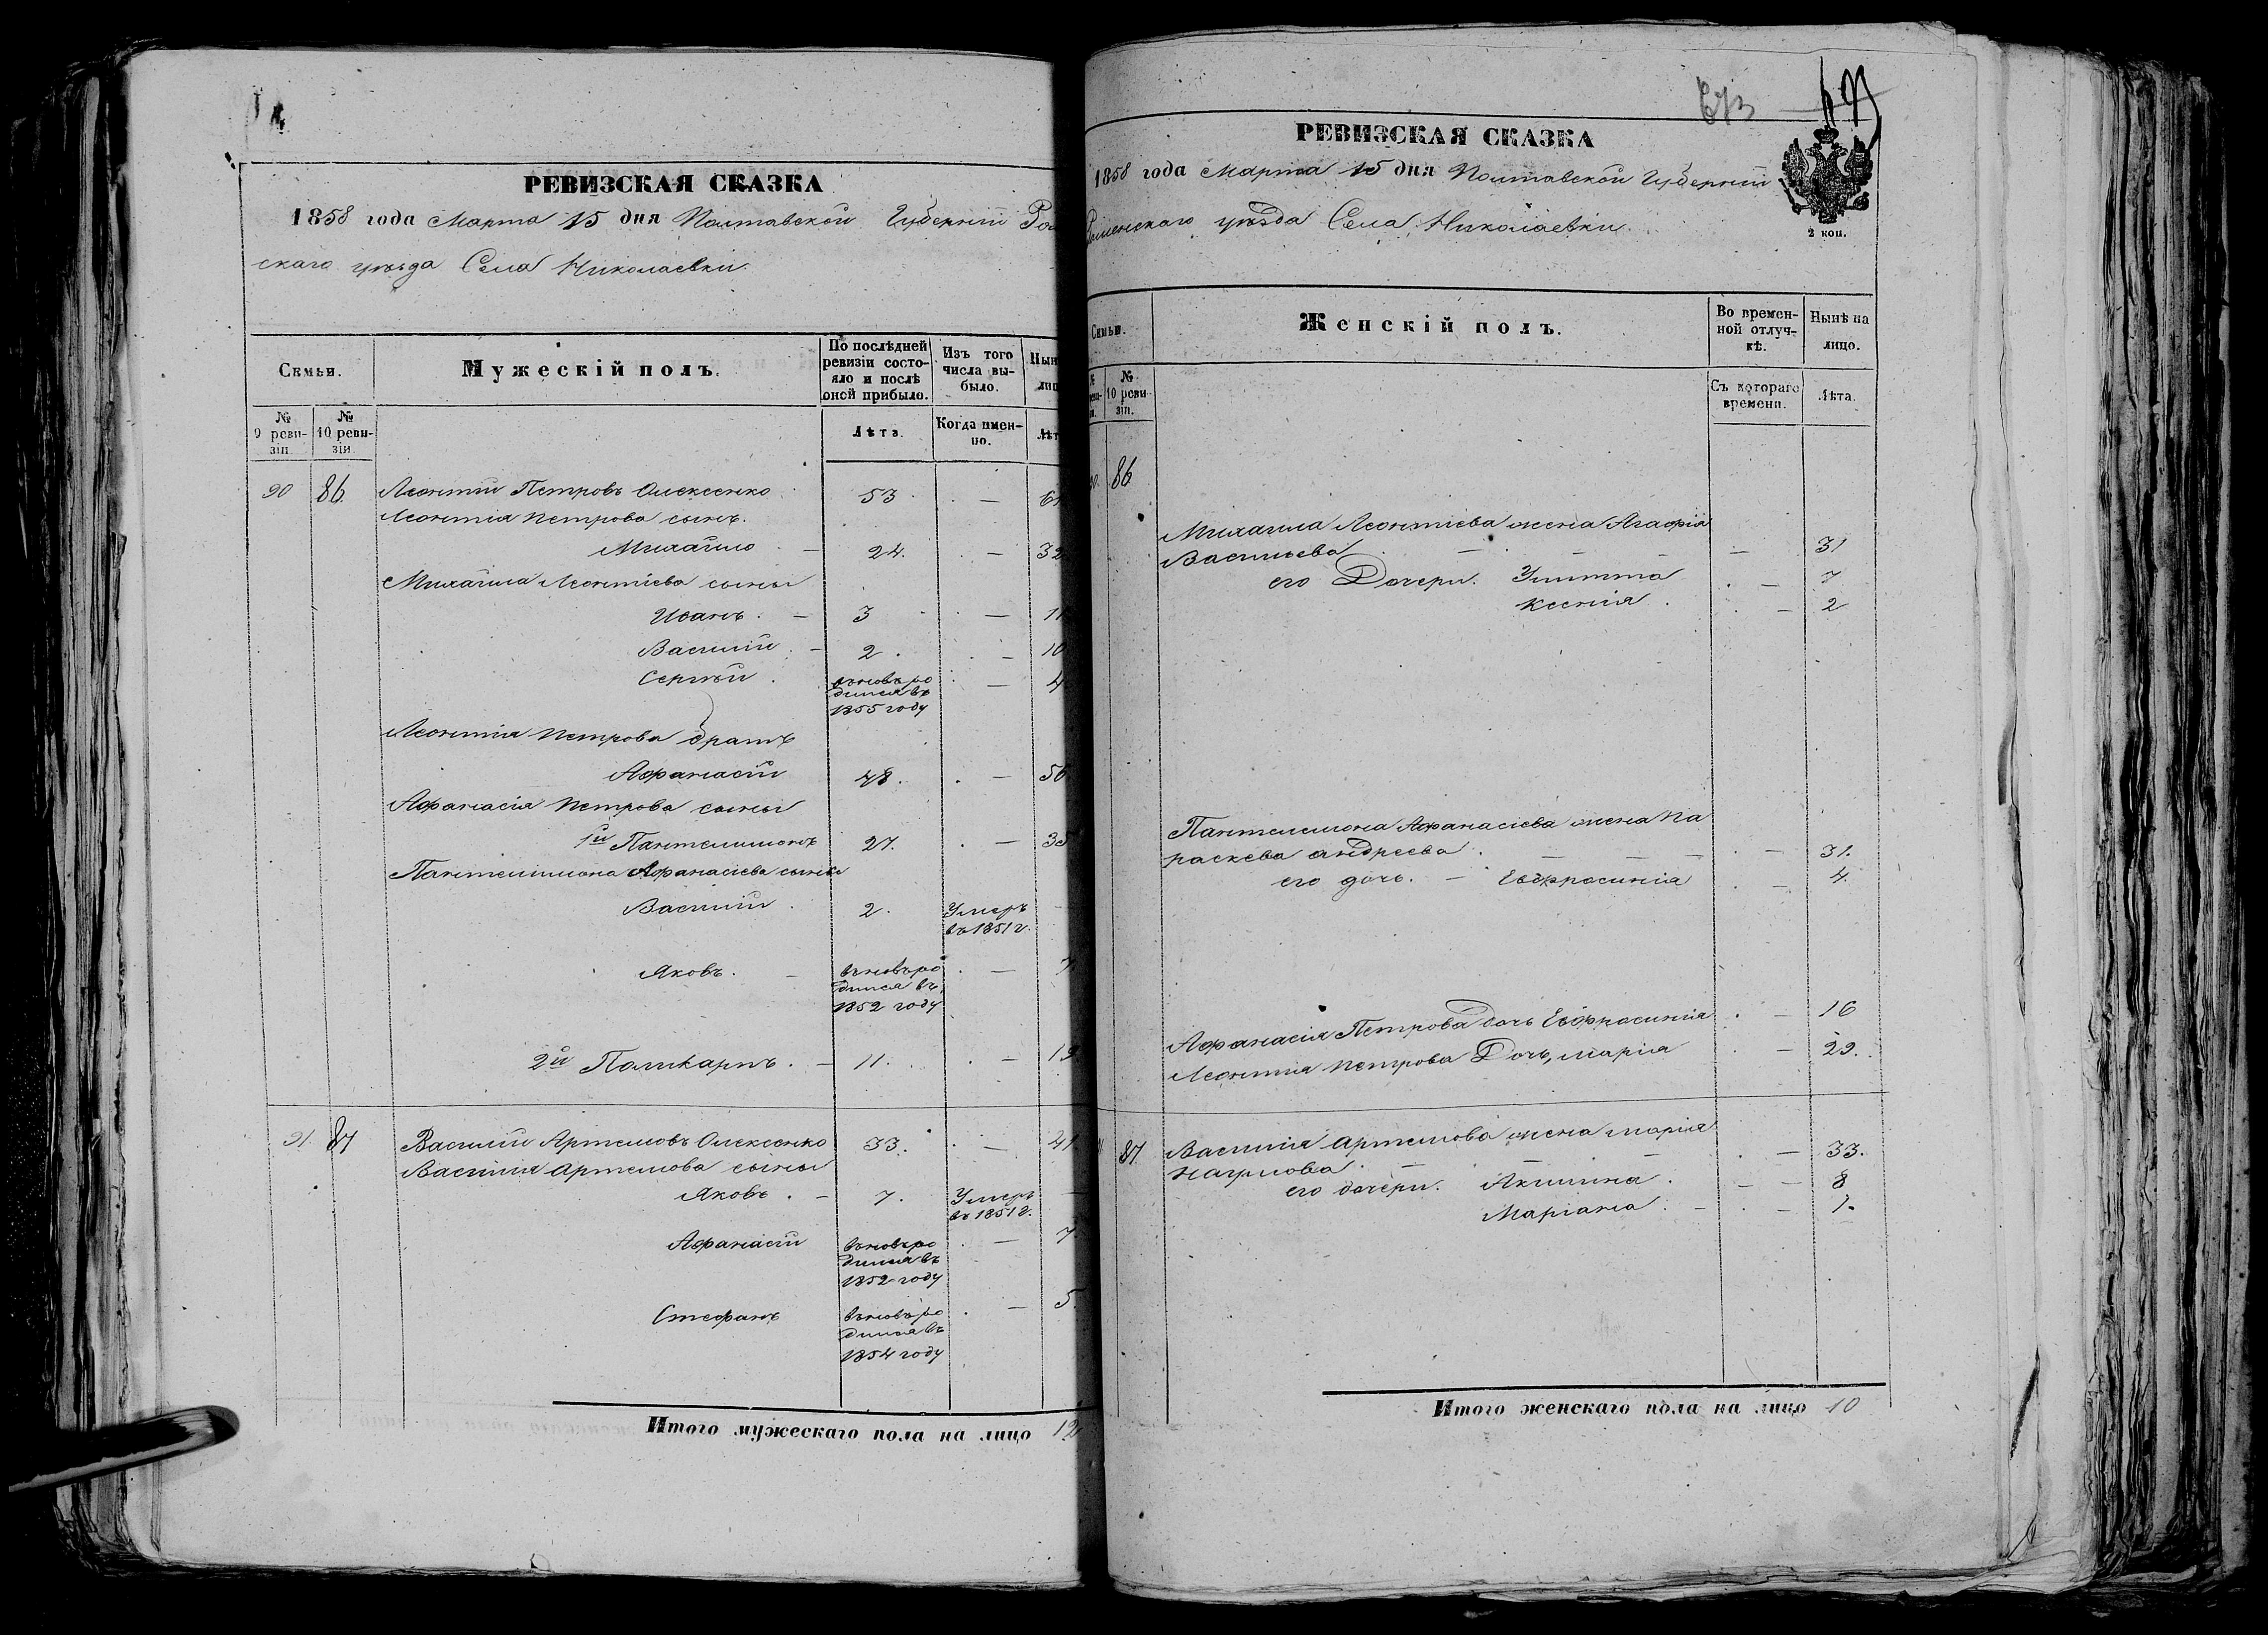 РЕВИЗСКАЯ СКАЗКА
1858 года Марта 15 дня Полтавской Губерніи Ро
скаго уѣзда Села Николаевки
Семьи.
Мужескій полъ.
По послѣдней ревизіи состояло и послѣ оной прибыло.
Изъ того числа выбыло.
Нын
лиц
№ 9 ревизіи.
№ 10 ревизіи.
Лѣта.
Когда именно.
Лѣт
90 86. Леонтій Петровъ Олексенко 53. — 61
Леонтія Петрова сынъ.
Михайло — 24. — 32
Михайла Леонтіева сыны
Иванъ. — 3 — 11
Василій. — 2. — 10
Сергѣй. вновь родился въ 1855 году — 4
Леонтія Петрова братъ
Афанасій 48. — 56
Афанасія Петрова сыны
1й Пантелимонъ 27. — 35
Пантелимона Афанасіева сыны
Василій. 2. Умеръ въ 1851 г. —
Яковъ. — вновь родился въ 1852 году — 7
2й Поликарпъ. — 11. — 19
91. 87 Василій Артемовъ Олексенко 33. — 41
Василія Артемова сыны
Яковъ. — 7. Умеръ въ 1851 г. —
Афанасій вновь родился въ 1852 году — 7
Стефанъ вновь родился въ 1854 году — 5.
Итого мужескаго пола на лицо 12
673
РЕВИЗСКАЯ СКАЗКА
1858 года Марта 15 дня Полтавской Губерніи
Роменскаго уѣзда Села Николаевки.
2 коп.
Семьи.
Женскій полъ.
Во временной отлучкѣ.
Нынѣ на лицо.
№ 10 ревизіи.
Съ котораго времени.
Лѣта.
86
Михайла Леонтіева жена Агафія
Васильева — — — — 31
его Дочери. Улитта — 7
Ксенія. — 2
Пантелемона Афанасіева жена Па
раскева Андреева. — — — — 31.
его дочь. — Евфросинія — 4.
Афанасія Петрова дочь Евфросинія. — 16
Леонтія Петрова Дочь, Марія — 29.
87. Василія Артемова жена Марія
Наумова. — — — — 33.
его дочери. Акилина. — — 8
Маріана. — — 1.
Итого женскаго пола на лицо 10